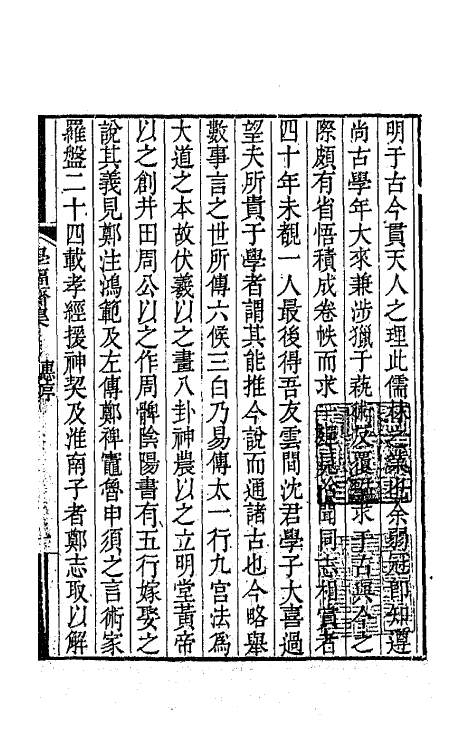 明于古今貫天人之理此儒林之業也余弱冠卽知遵
尚古學年大來兼涉獵于萟術反覆硏求于古與今之
際頗有省悟積成卷帙而求一殫見洽聞同志相賞者
四十年未覩一人最後得吾友雲間沈君學子大喜過
望夫所貴于學者謂其能推今說而通諸古也今略舉
數事言之世所傳六候三白乃易傳太一行九宮法爲
大道之本故伏羲以之畫八卦神農以之立明堂黃帝
以之創井田周公以之作周髀陰陽書有五行嫁娶之
說其義見鄭注鴻範及左傳鄭裨竈魯申須之言術家
羅盤二十四載孝經援神契及淮南子者鄭志取以解
學福齋集 惠序